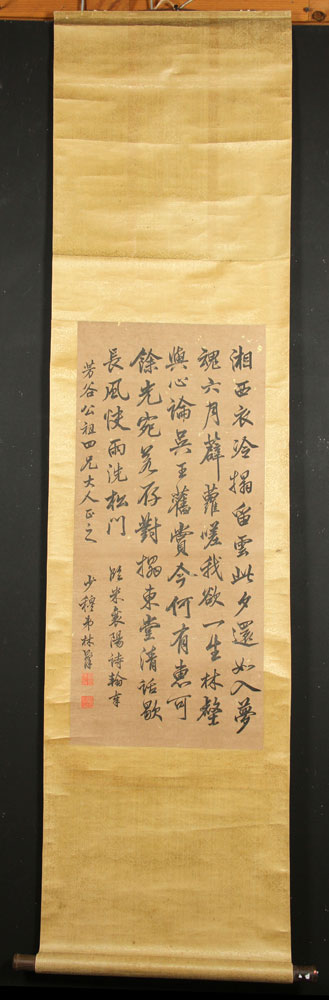 湘西衣冷搨留雲此夕還如入夢
魂六月薜蘿嗟我欲一生林壑
與心論吳王舊賞今何有惠可
餘光宛若存對搨東堂清話歇
長風快雨洗松门
臨米襄陽诗翰
芳谷公祖四兄大人正之
少穆弟林